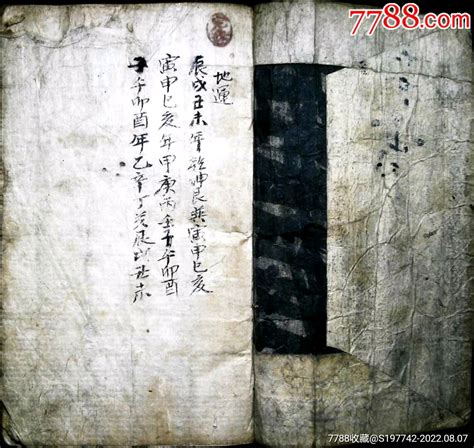 7788.com
地運
辰戌丑未年乾坤艮巽寅申巳亥
寅申巳亥年甲庚丙壬子午卯酉
子午卯酉年乙辛丁癸辰戌丑未
7788收藏@S197742-2022.08.07